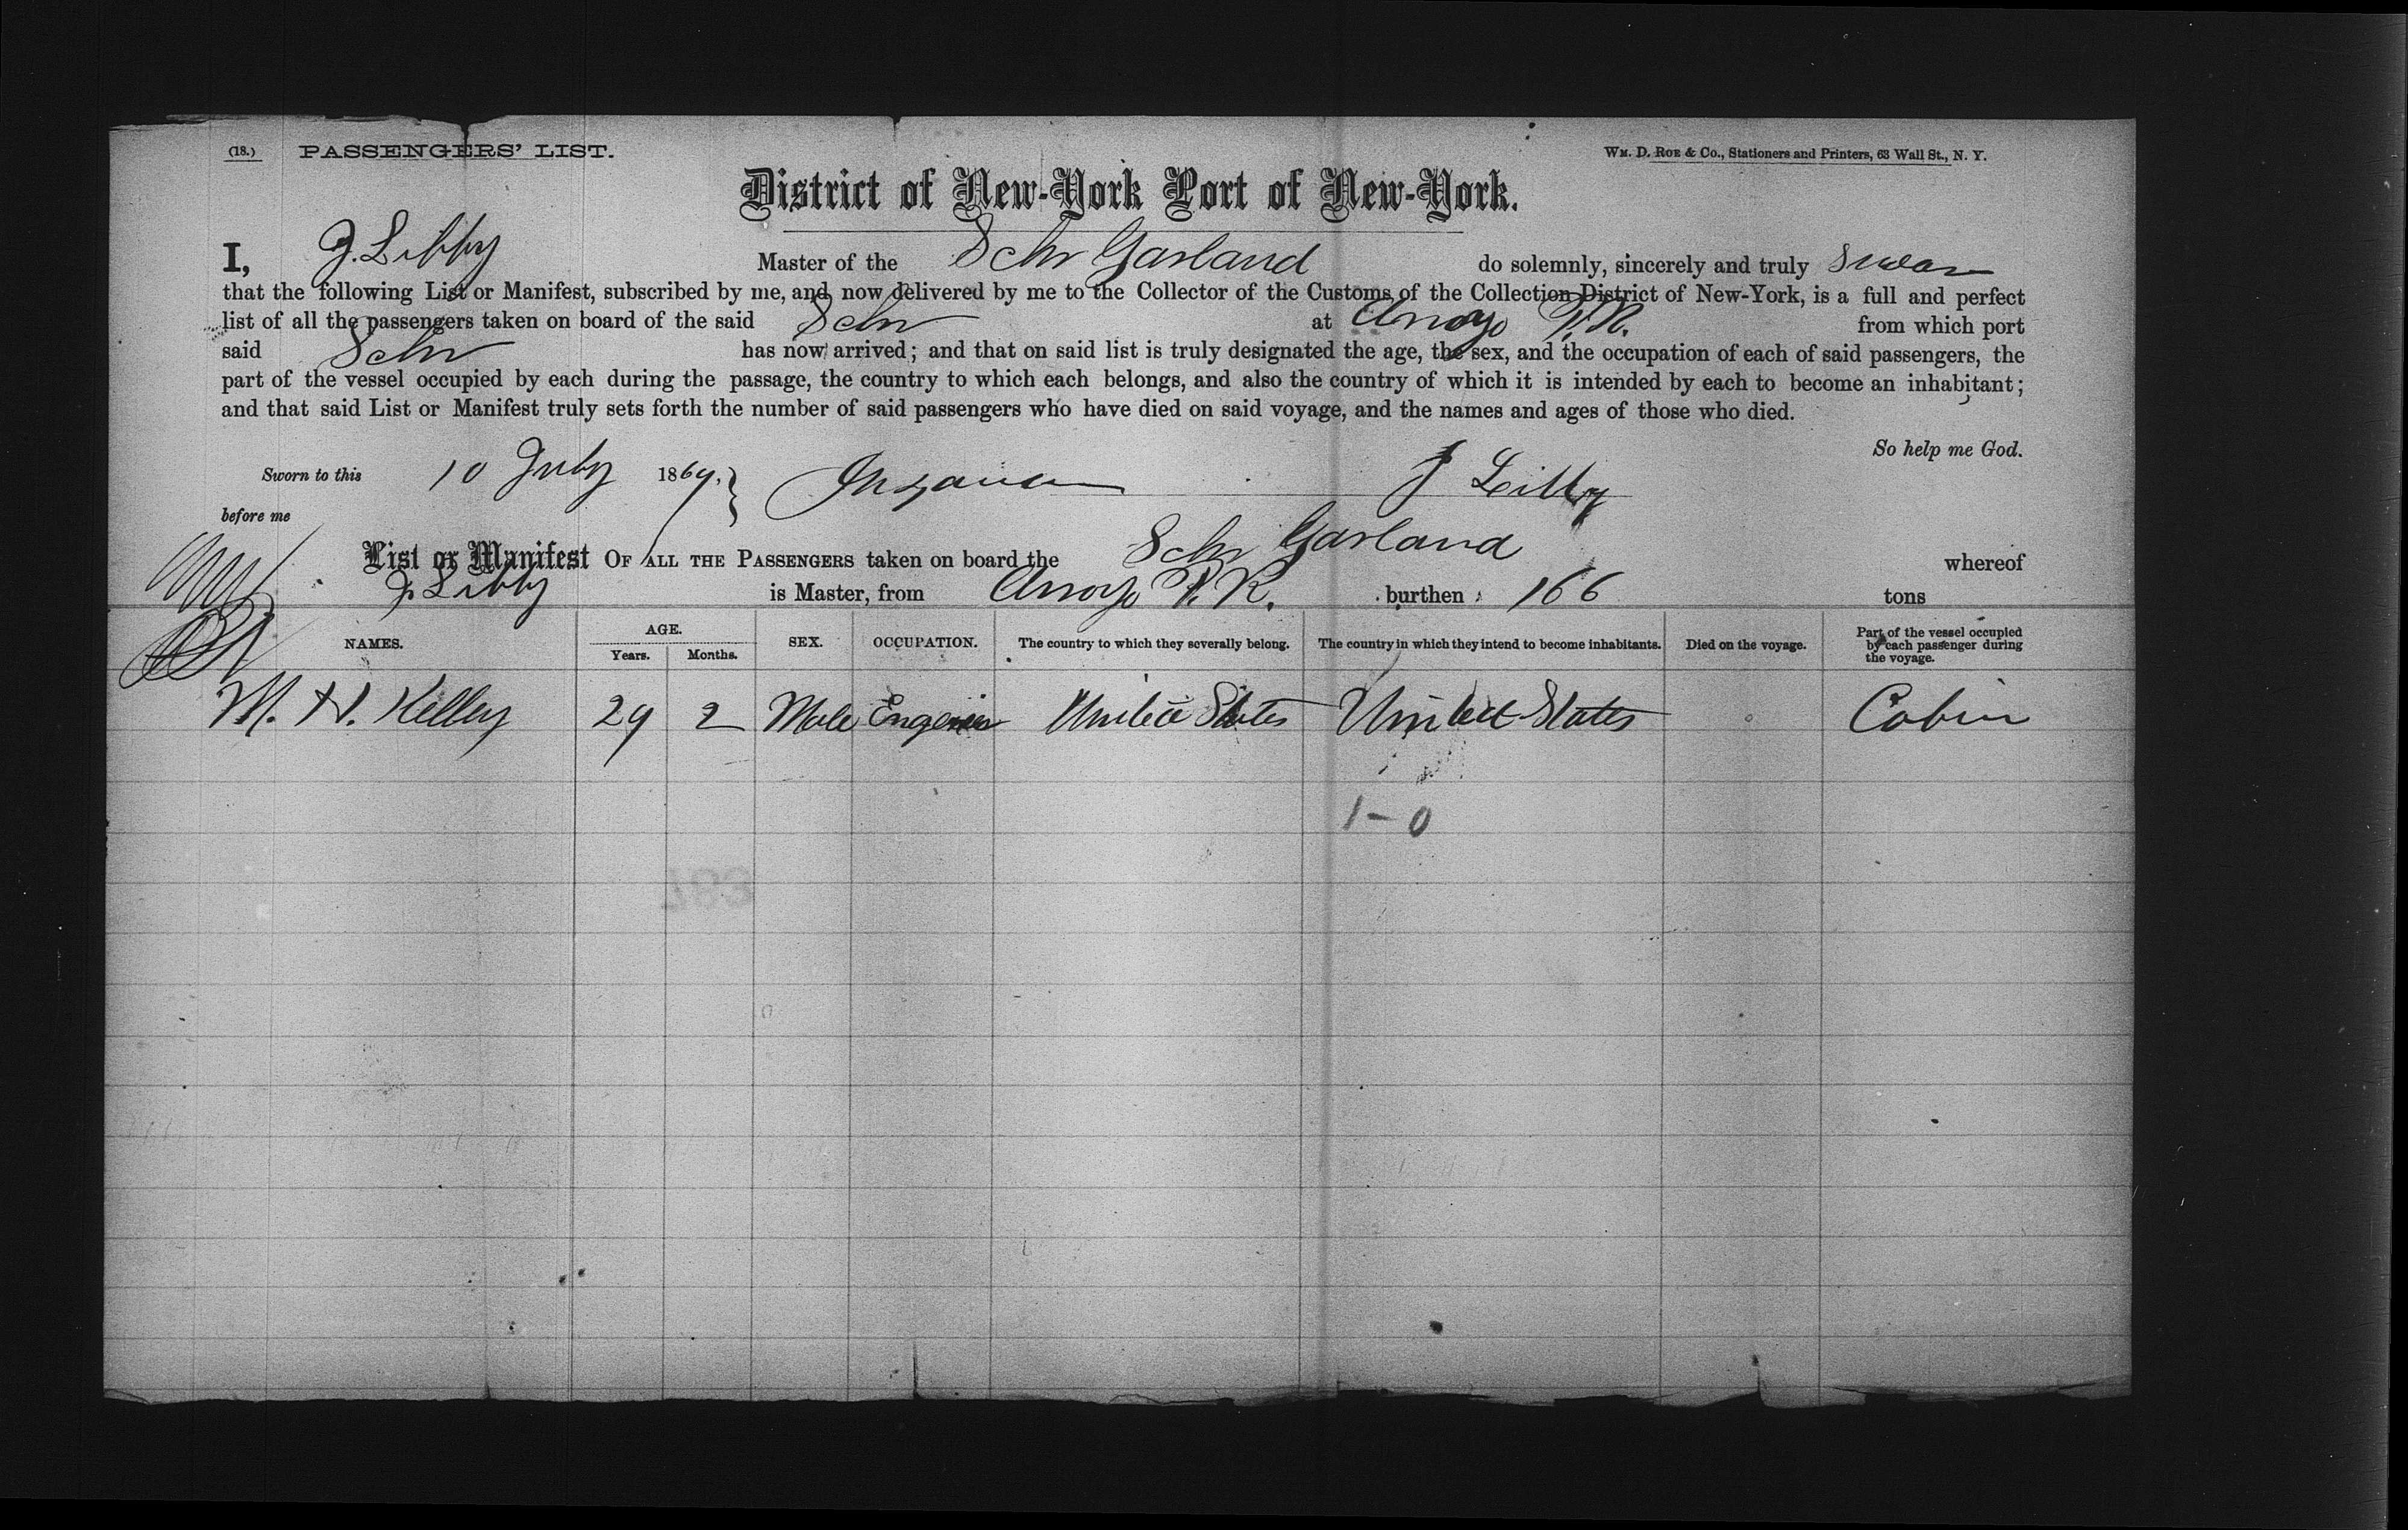 (18.) PASSENGERS' LIST.
WM. D. ROE & Co., Stationers and Printers, 63 Wall St., N. Y.
District of New-York Port of New-York.
I, J. Libby Master of the Schr Garland do solemnly, sincerely and truly swear
that the following List or Manifest, subscribed by me, and now delivered by me to the Collector of the Customs of the Collection District of New-York, is a full and perfect
list of all the passengers taken on board of the said Schr at Arroyo P.R. from which port
said Schr has now arrived; and that on said list is truly designated the age, the sex, and the occupation of each of said passengers, the
part of the vessel occupied by each during the passage, the country to which each belongs, and also the country of which it is intended by each to become an inhabitant;
and that said List or Manifest truly sets forth the number of said passengers who have died on said voyage, and the names and ages of those who died.
So help me God.
Sworn to this 10 July 1869, J Libby
before me
List or Manifest OF ALL THE PASSENGERS taken on board the Schr Garland whereof
J. Libby is Master, from Arroyo P.R. burthen 166 tons
NAMES. AGE. Years. Months. SEX. OCCUPATION. The country to which they severally belong. The country in which they intend to become inhabitants. Died on the voyage. Part of the vessel occupied by each passenger during the voyage.
M. H. Kelley 29 2 Male United States United States Cabin
1-0